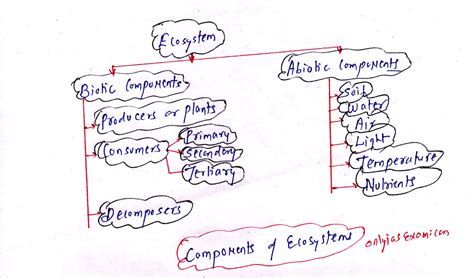 Ecosystem
Biotic Components
Producers or plants
Consumers
Primary
Secondary
Tertiary
Decomposers
Abiotic Components
Soil
Water
Air
Light
Temperature
Nutrients
Components of Ecosystem
onlyiasexamican